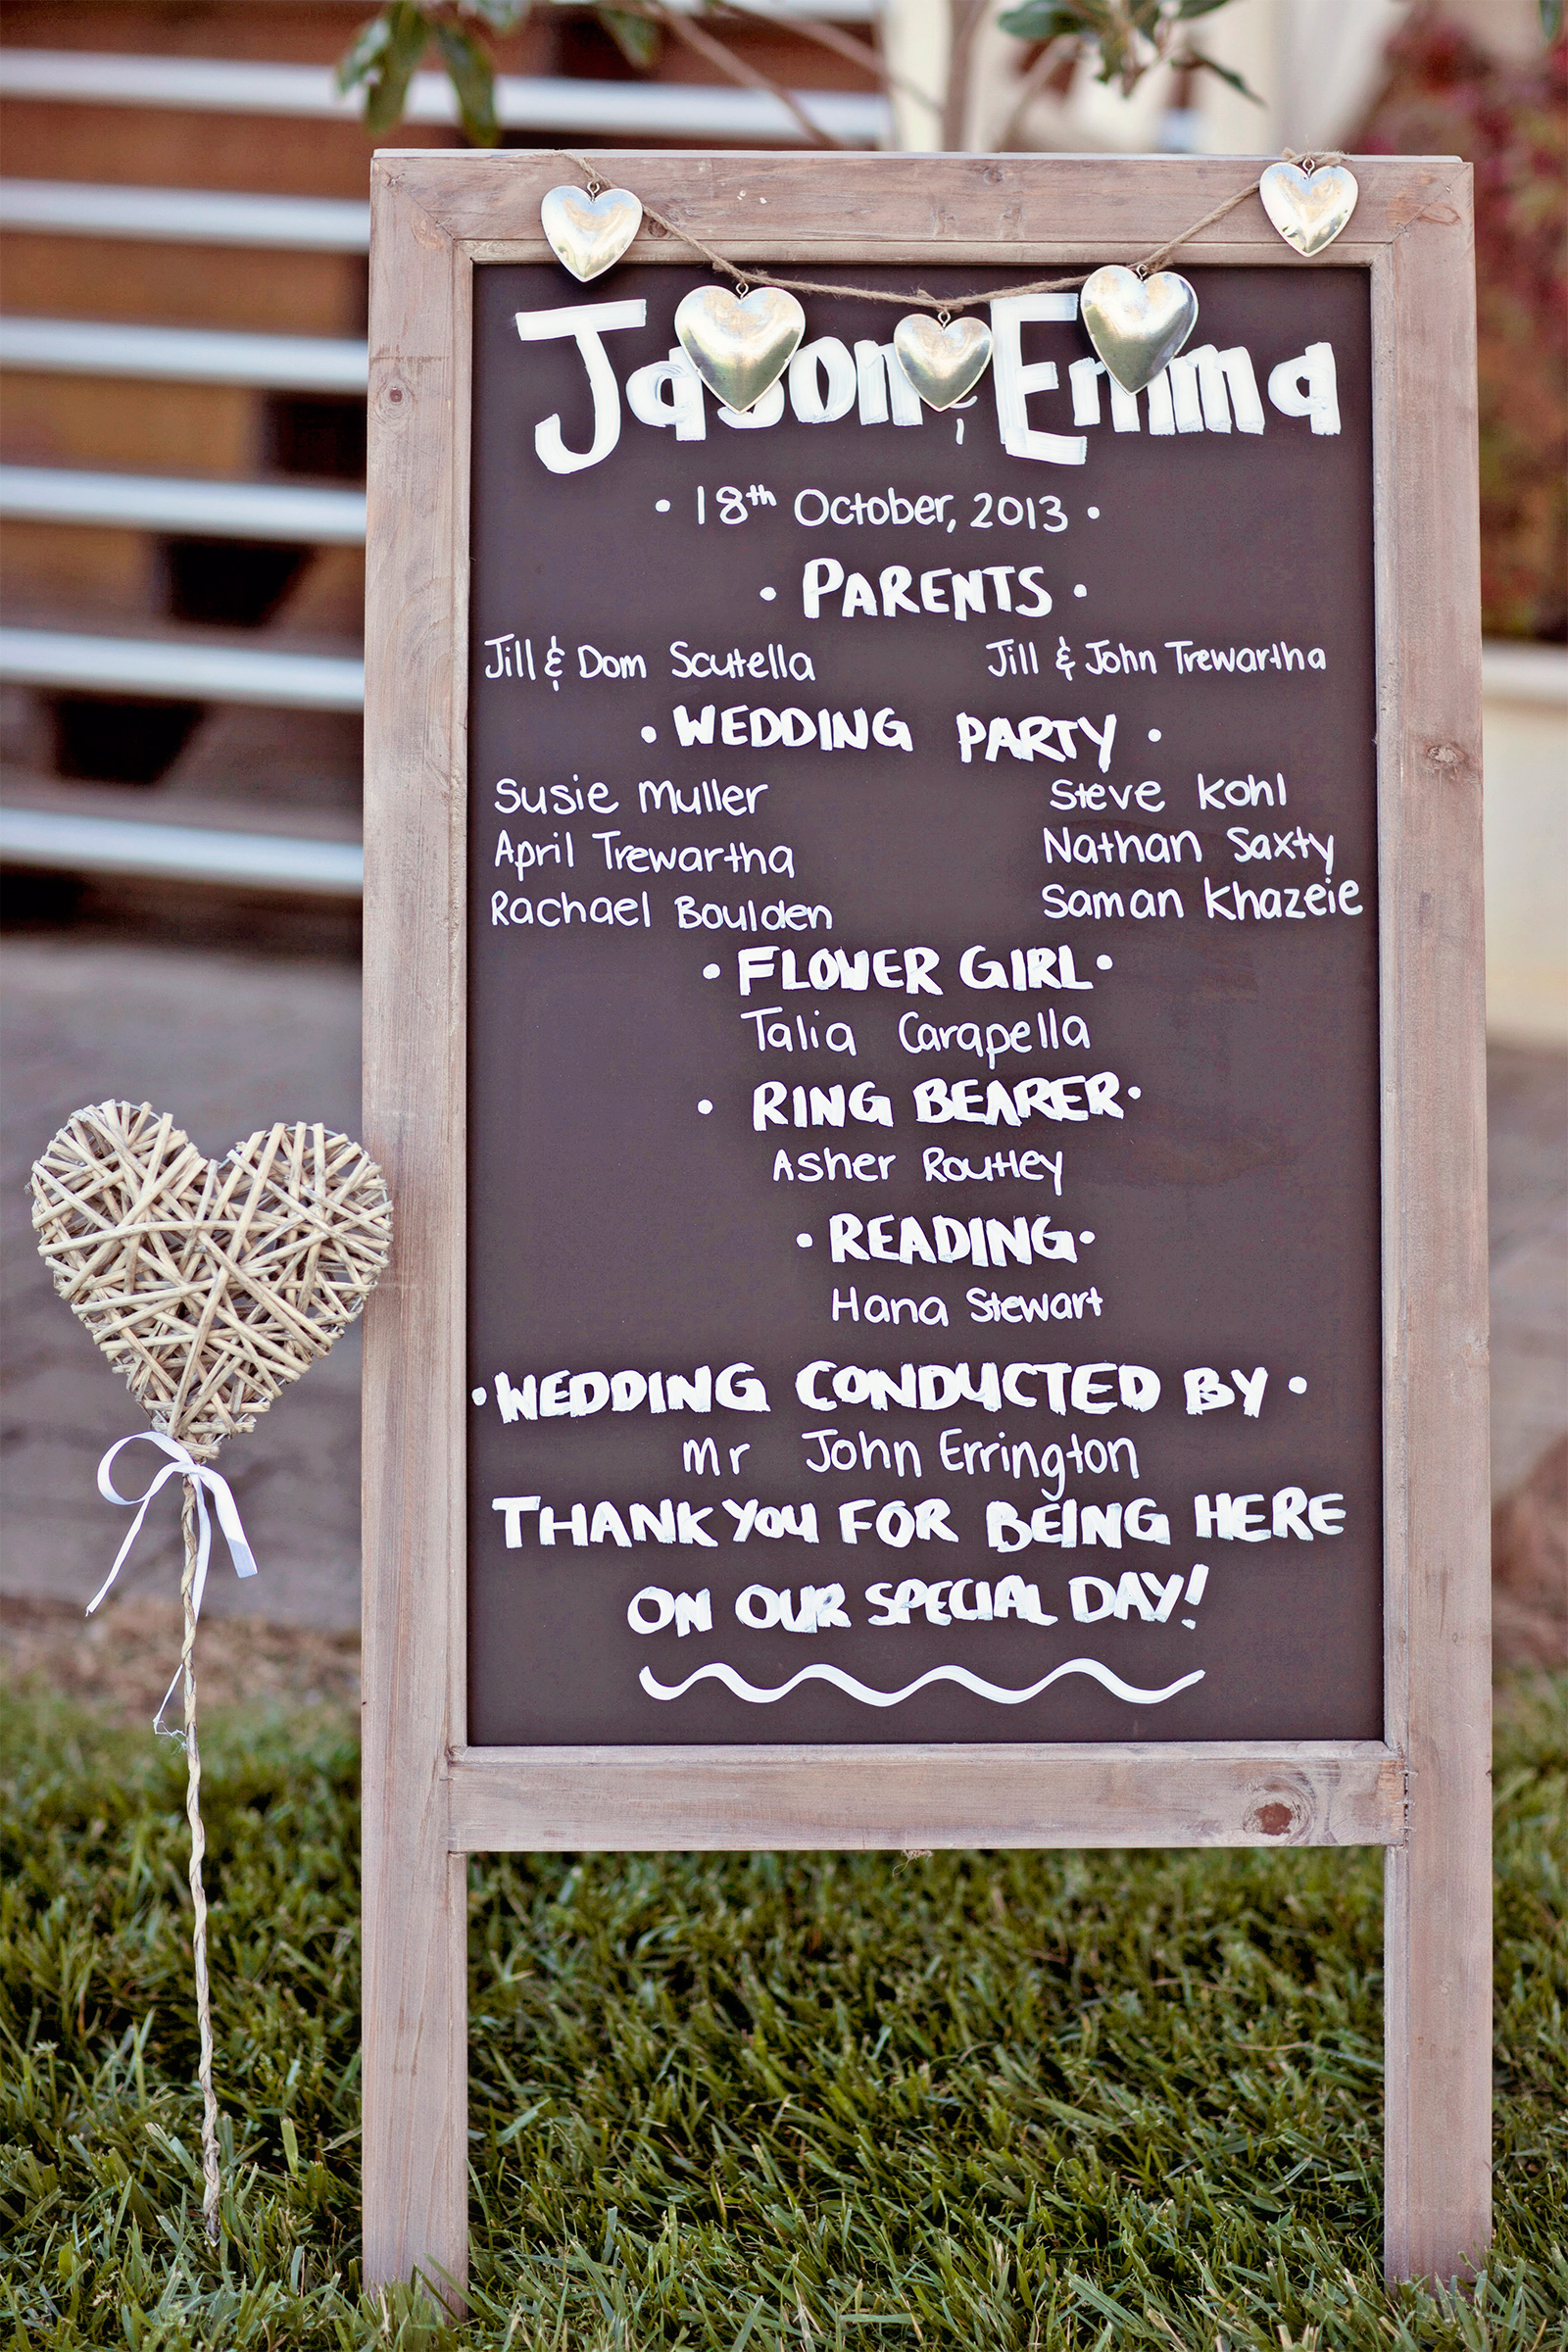 Jason & Emma
• 18th October, 2013 •
• PARENTS •
Jill & Dom Scutella Jill & John Trewartha
• WEDDING PARTY •
Susie Muller Steve Kohl
April Trewartha Nathan Saxty
Rachael Boulden Saman Khazeie
• FLOWER GIRL •
Talia Carapella
• RING BEARER •
Asher Routley
• READING •
Hana Stewart
• WEDDING CONDUCTED BY •
Mr John Errington
THANK YOU FOR BEING HERE
ON OUR SPECIAL DAY!